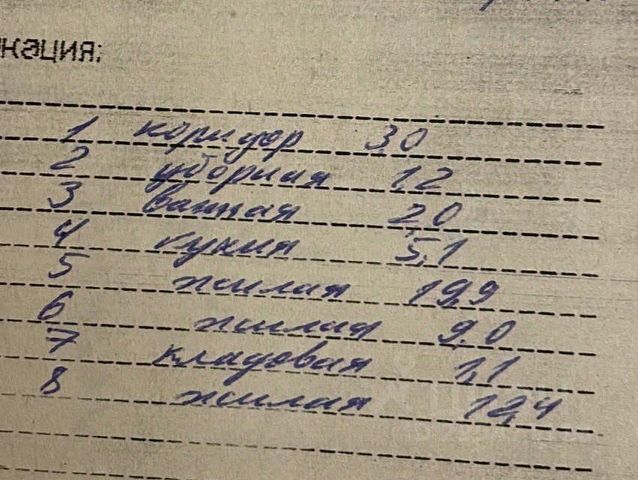 кация:
1 коридор 3,0
2 уборная 1,2
3 ванная 2,0
4 кухня 5,1
5 жилая 19,9
6 жилая 9,0
7 кладовая 1,1
8 жилая 12,4